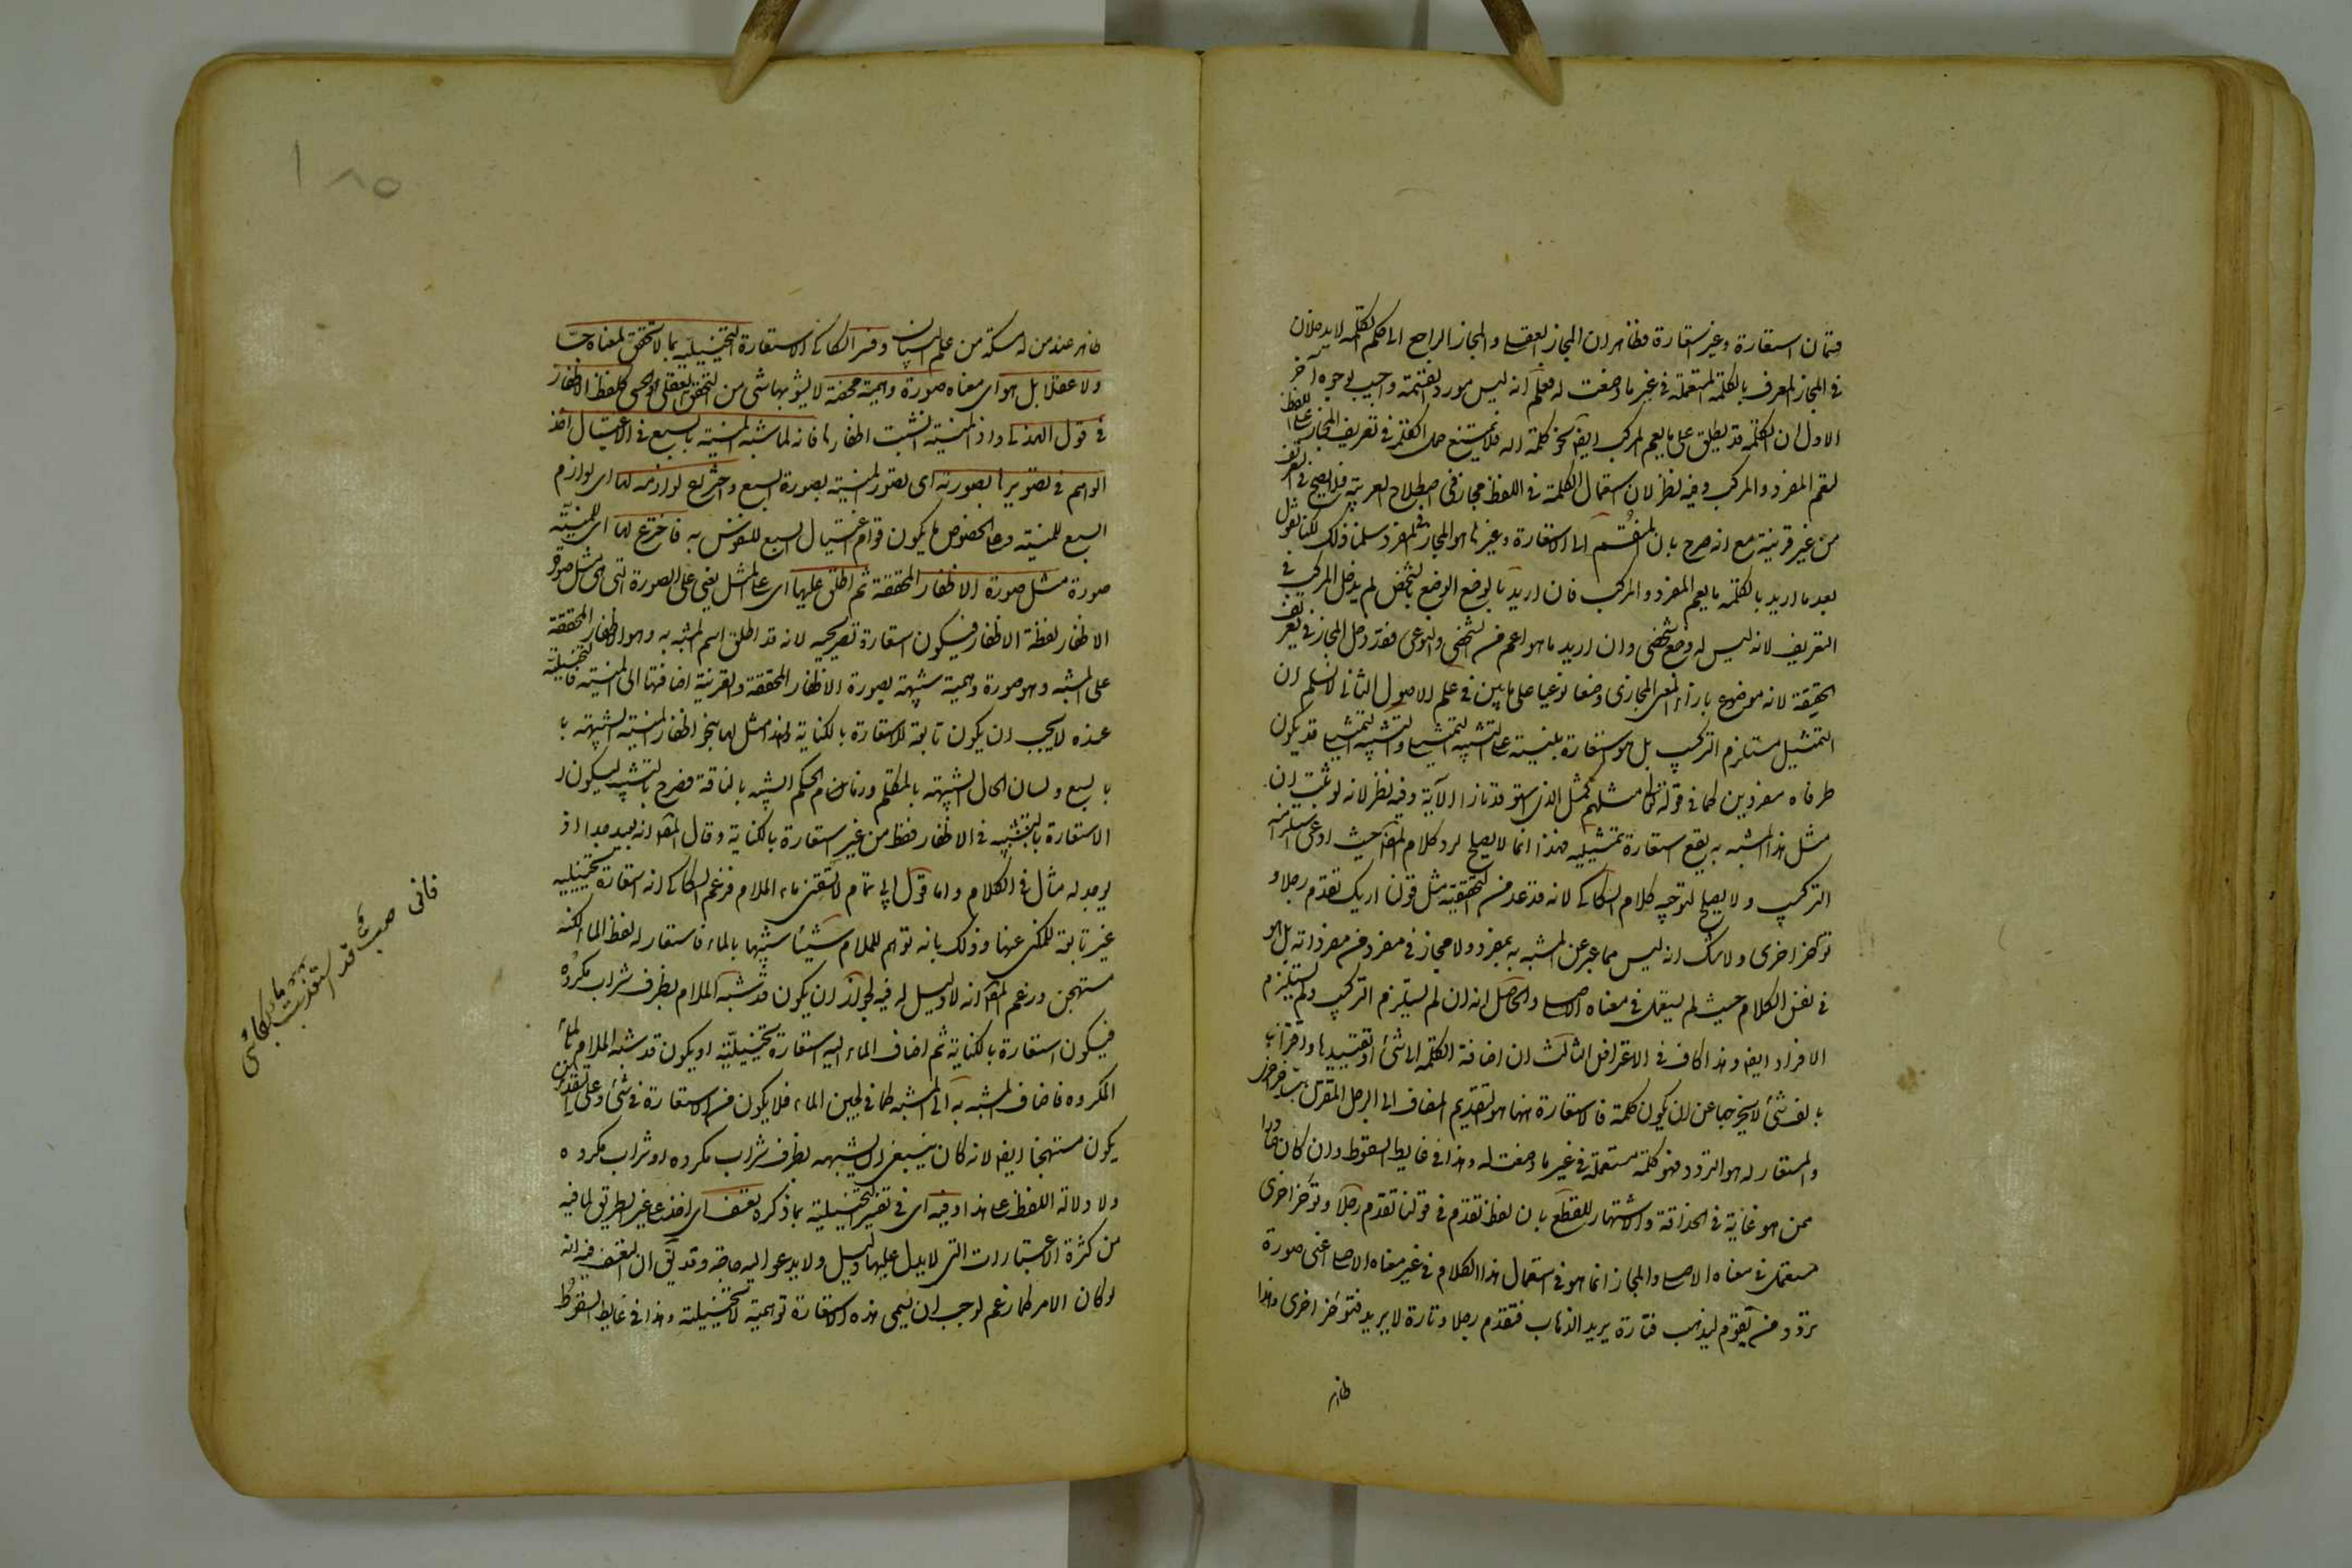 قسمان استعارة وغير استعارة وظاهر ان المجاز العقلي والمجاز الراجع الى حكم الكلمة لا يدخلان
في المجاز المعرف بالكلمة المستعملة في غير ما وضعت له فعلم انه ليس مورد القسمة واجيب بوجوه آخر
الاول ان الكلمة قد يطلق على ما يعم المركب ايضا نحو كلمة الله فلا يمتنع حمل الكلمة في تعريف المجاز على اللفظ
ليعم المفرد والمركب وفيه نظر لان استعمال الكلمة في اللفظ مجاز في اصطلاح العربية فلا يصح في التعريف
من غير قرينة مع انه صرح بان المنقسم الى الاستعارة وغيرها هو المجاز في المفرد سلمنا ذلك لكنا نقول
بعد ما اريد بالكلمة ما يعم المفرد والمركب فان اريد بالوضع الوضع الشخصي لم يدخل المركب في
التعريف لانه ليس له وضع شخصي وان اريد ما هو اعم من الشخصي والنوعي فقد دخل المجاز في تعريف
الحقيقة لانه موضوع بازاء المعنى المجازي وضعا نوعيا على ما بين في علم الاصول الثاني لا نسلم ان
التمثيل مستلزم التركيب بل هو استعارة مبنية على التشبيه التمثيلي والتشبيه التمثيلي قد يكون
طرفاه مفردين كما في قوله تعالى مثلهم كمثل الذي استوقد نارا الاية وفيه نظر لانه لو ثبت ان
مثل هذا المشبه به يقع استعارة تمثيلية فهذا انما لا يصلح لرد كلام المصنف حيث ادعى استلزامه
التركيب ولا يصلح لتوجيه كلام السكاكي لانه قد عد من التحقيقية مثل قولنا اراك تقدم رجلا و
تؤخر اخرى ولا شك انه ليس مما عبر عن المشبه به بمفرد ولا مجاز في مفرد من مفرداته بل هو
في نفس الكلام حيث لم يستعمل في معناه الاصلي والحاصل انه ان لم يستلزم التركيب ولم يستلزم
الافراد ايضا وهذا كاف في الاعتراض الثالث ان اضافة الكلمة الى شئ او تقييدها واقترانها
بالف شئ لا يخرجها عن ان يكون كلمة فالاستعارة ههنا هو التقديم المضاف الى الرجل المقترن بتأخير اخرى
والمستعار له هو التردد فهو كلمة مستعملة في غير ما وضعت له وهذا في غاية السقوط وان كان صادرا
ممن هو غاية في الحذاقة والاشتهار للقطع بان لفظ تقدم في قولنا تقدم رجلا وتؤخر اخرى
مستعمل في معناه الاصلي والمجاز انما هو في استعمال هذا الكلام في غير معناه الاصلي اعني صورة
تردد من يقوم ليذهب فتارة يريد الذهاب فتقدم رجلا وتارة لا يريد فتؤخر اخرى وهذا
ظاهر
ظاهر عند من له مسكة من علم البيان وفسر السكاكي الاستعارة التخييلية بما لا تحقق لمعناه حسا
ولا عقلا بل هو اي معناه صورة وهمية محضة لا يشوبها شئ من التحقق العقلي او الحسي كلفظ الاظفار
في قول الهذلي واذا المنية انشبت اظفارها فانه لما شبه المنية بالسبع في الاغتيال اخذ
الوهم في تصويرها بصورته اي تصوير المنية بصورة السبع واختراع لوازمه لها اي لوازم
السبع للمنية وعلى الخصوص ما يكون قوام اغتيال السبع للنفوس به فاخترع لها اي للمنية
صورة مثل صورة الاظفار المحققة ثم اطلق عليها اي على المثل يعني على الصورة التي هي مثل صورة
الاظفار لفظة الاظفار فيكون استعارة تصريحية لانه قد اطلق اسم المشبه به وهو الاظفار المحققة
على المشبه وهو صورة وهمية شبيهة بصورة الاظفار المحققة والقرينة اضافتها الى المنية فالتخييلية
عنده لا يجب ان يكون تابعة للاستعارة بالكناية ولهذا مثل لها بنحو اظفار المنية الشبيهة با
بالسبع ولسان الحال الشبيهة بالمتكلم وزمام الحكم الشبيه بالناقة فصرح بالتشبيه ليكون
الاستعارة بالتشبيه في الاظفار فقط من غير استعارة بالكناية وقال المصنف انه بعيد جدا اذ
يوجد له مثال في الكلام واما قول ابي تمام لا تسقني ماء الملام فزعم السكاكي انه استعارة تخييلية
غير تابعة للمكني عنها وذلك بانه توهم للملام شيئا شبيها بالماء فاستعار له لفظ الماء لكنه
مستهجن وزعم المصنف انه لا دليل له فيه لجواز ان يكون قد شبه الملام بظرف شراب مكروه
فيكون استعارة بالكناية ثم اضاف الماء اليه استعارة تخييلية او يكون قد شبه الملام بالماء
المكروه فاضاف المشبه به الى المشبه كما في لجين الماء فلا يكون من الاستعارة في شئ وعلى التقديرين
يكون مستهجنا ايضا لانه كان ينبغي ان يشبهه بظرف شراب مكروه او شراب مكروه
ولا دلالة للفظ على هذا وفيه اي في تفسير التخييلية بما ذكره تعسف اي اخذ على غير الطريق لما فيه
من كثرة الاعتبارات التي لا يدل عليها دليل ولا يدعو اليه حاجة وقد يق ان التعسف فيه انه
لو كان الامر كما زعم لوجب ان يسمى هذه الاستعارة توهمية لا تخييلية وهذا في غاية السقوط
فاني صب قد استعذبت
ماء بكائي
١٨٥